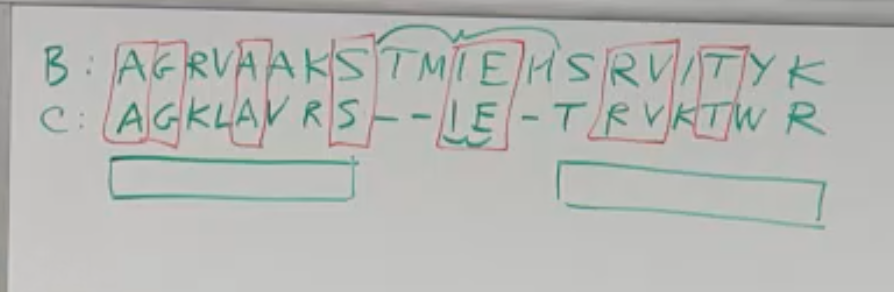 B: AGRVAAKSTMIEHSRVITYK
C: AGKLAVRS--IE-TRVKTWR